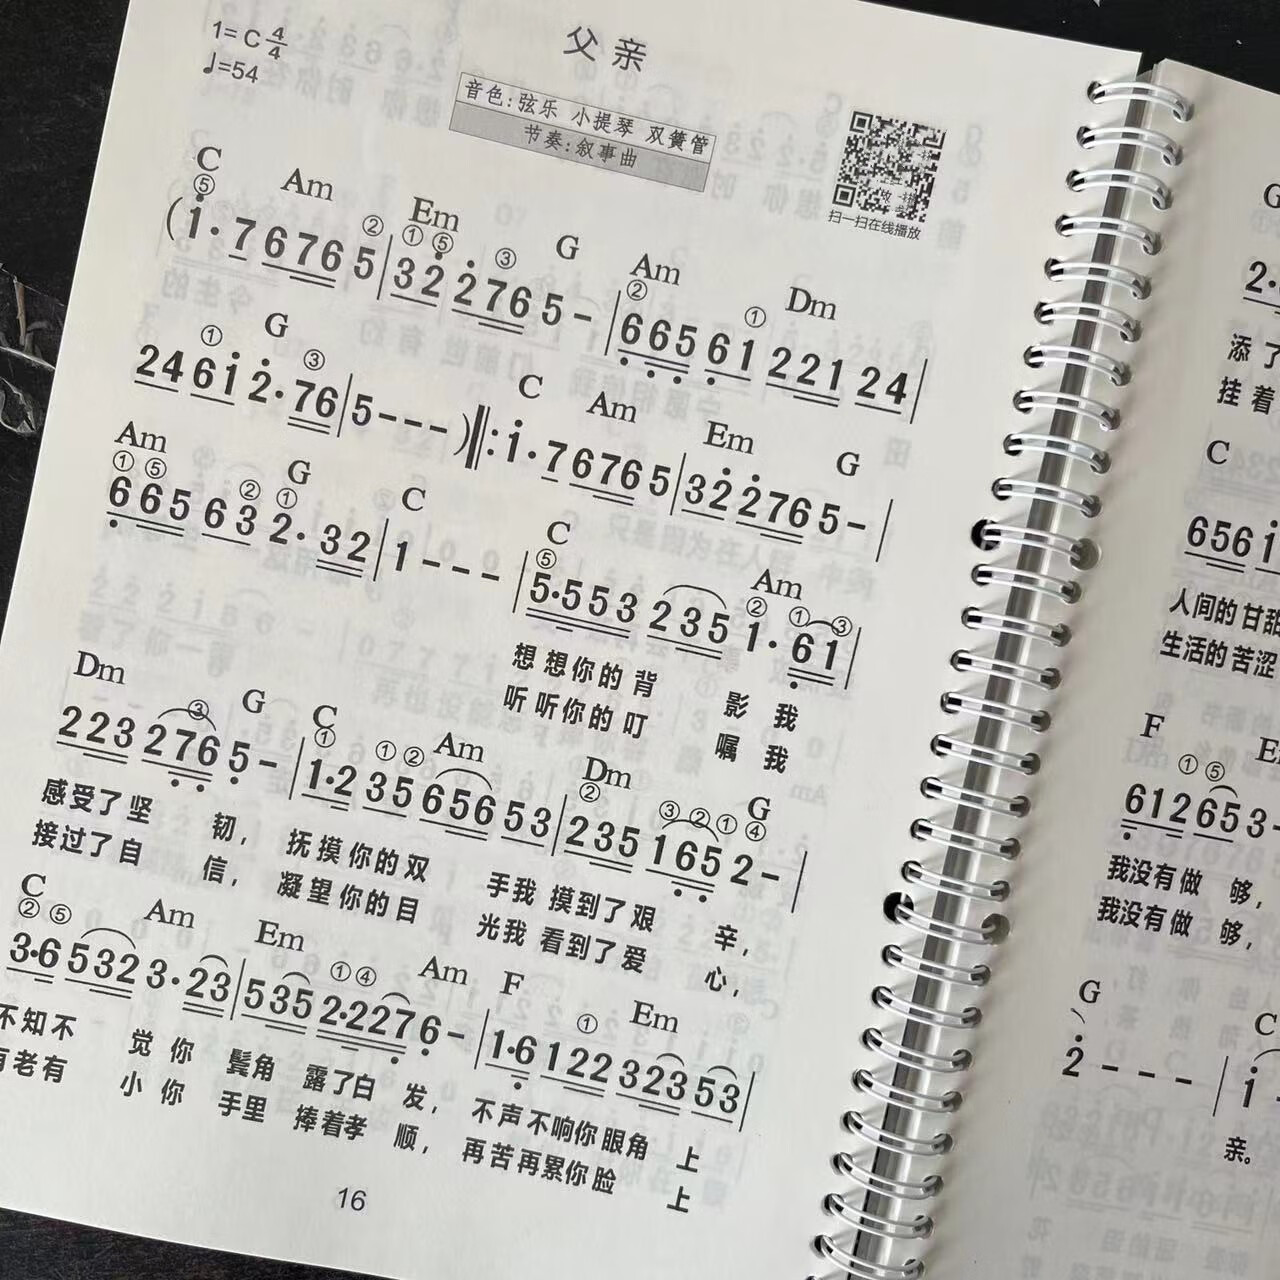 父亲
1=C 4/4
♩=54
音色:弦乐 小提琴 双簧管
节奏:叙事曲
扫一扫在线播放
C Am Em G Am Dm
⑤ ② ① ⑤ ③ ② ①
(i·7 6765 | 32 276 5- | 6656 1 221 24 |
G C Am Em G
① ③
24 61 2·76 | 5--- )‖: i·7 6765 | 32 276 5- |
Am G C C Am
① ⑤ ② ① ⑤ ② ① ③
665 63 2·32 | 1--- | 5·553 235 1·61 |
想想你的背 影 我
听听你的叮 嘱 我
Dm G C Am Dm G
③ ① ① ② ② ③ ② ① ④
223 276 5- | 1·2 35 656 53 | 235 165 2- |
感受了坚 韧, 抚摸你的双 手我 摸到了艰 辛,
接过了自 信, 凝望你的目 光我 看到了爱 心,
C Am Em Am F Em
② ⑤ ① ④ ①
3·6 532 3·23 | 535 2·227 6- | 1·6 122 323 53 |
不知不 觉 你 鬓角 露了白 发, 不声不响你眼角 上
有老有 小 你 手里 捧着孝 顺, 再苦再累你脸 上
16
G
2·
添了
挂着
C
656 i
人间的甘甜
生活的苦涩
F
① ⑤
612 65 3-
我没有做 够,
我没有做 够,
G C
2--- | i·
亲。